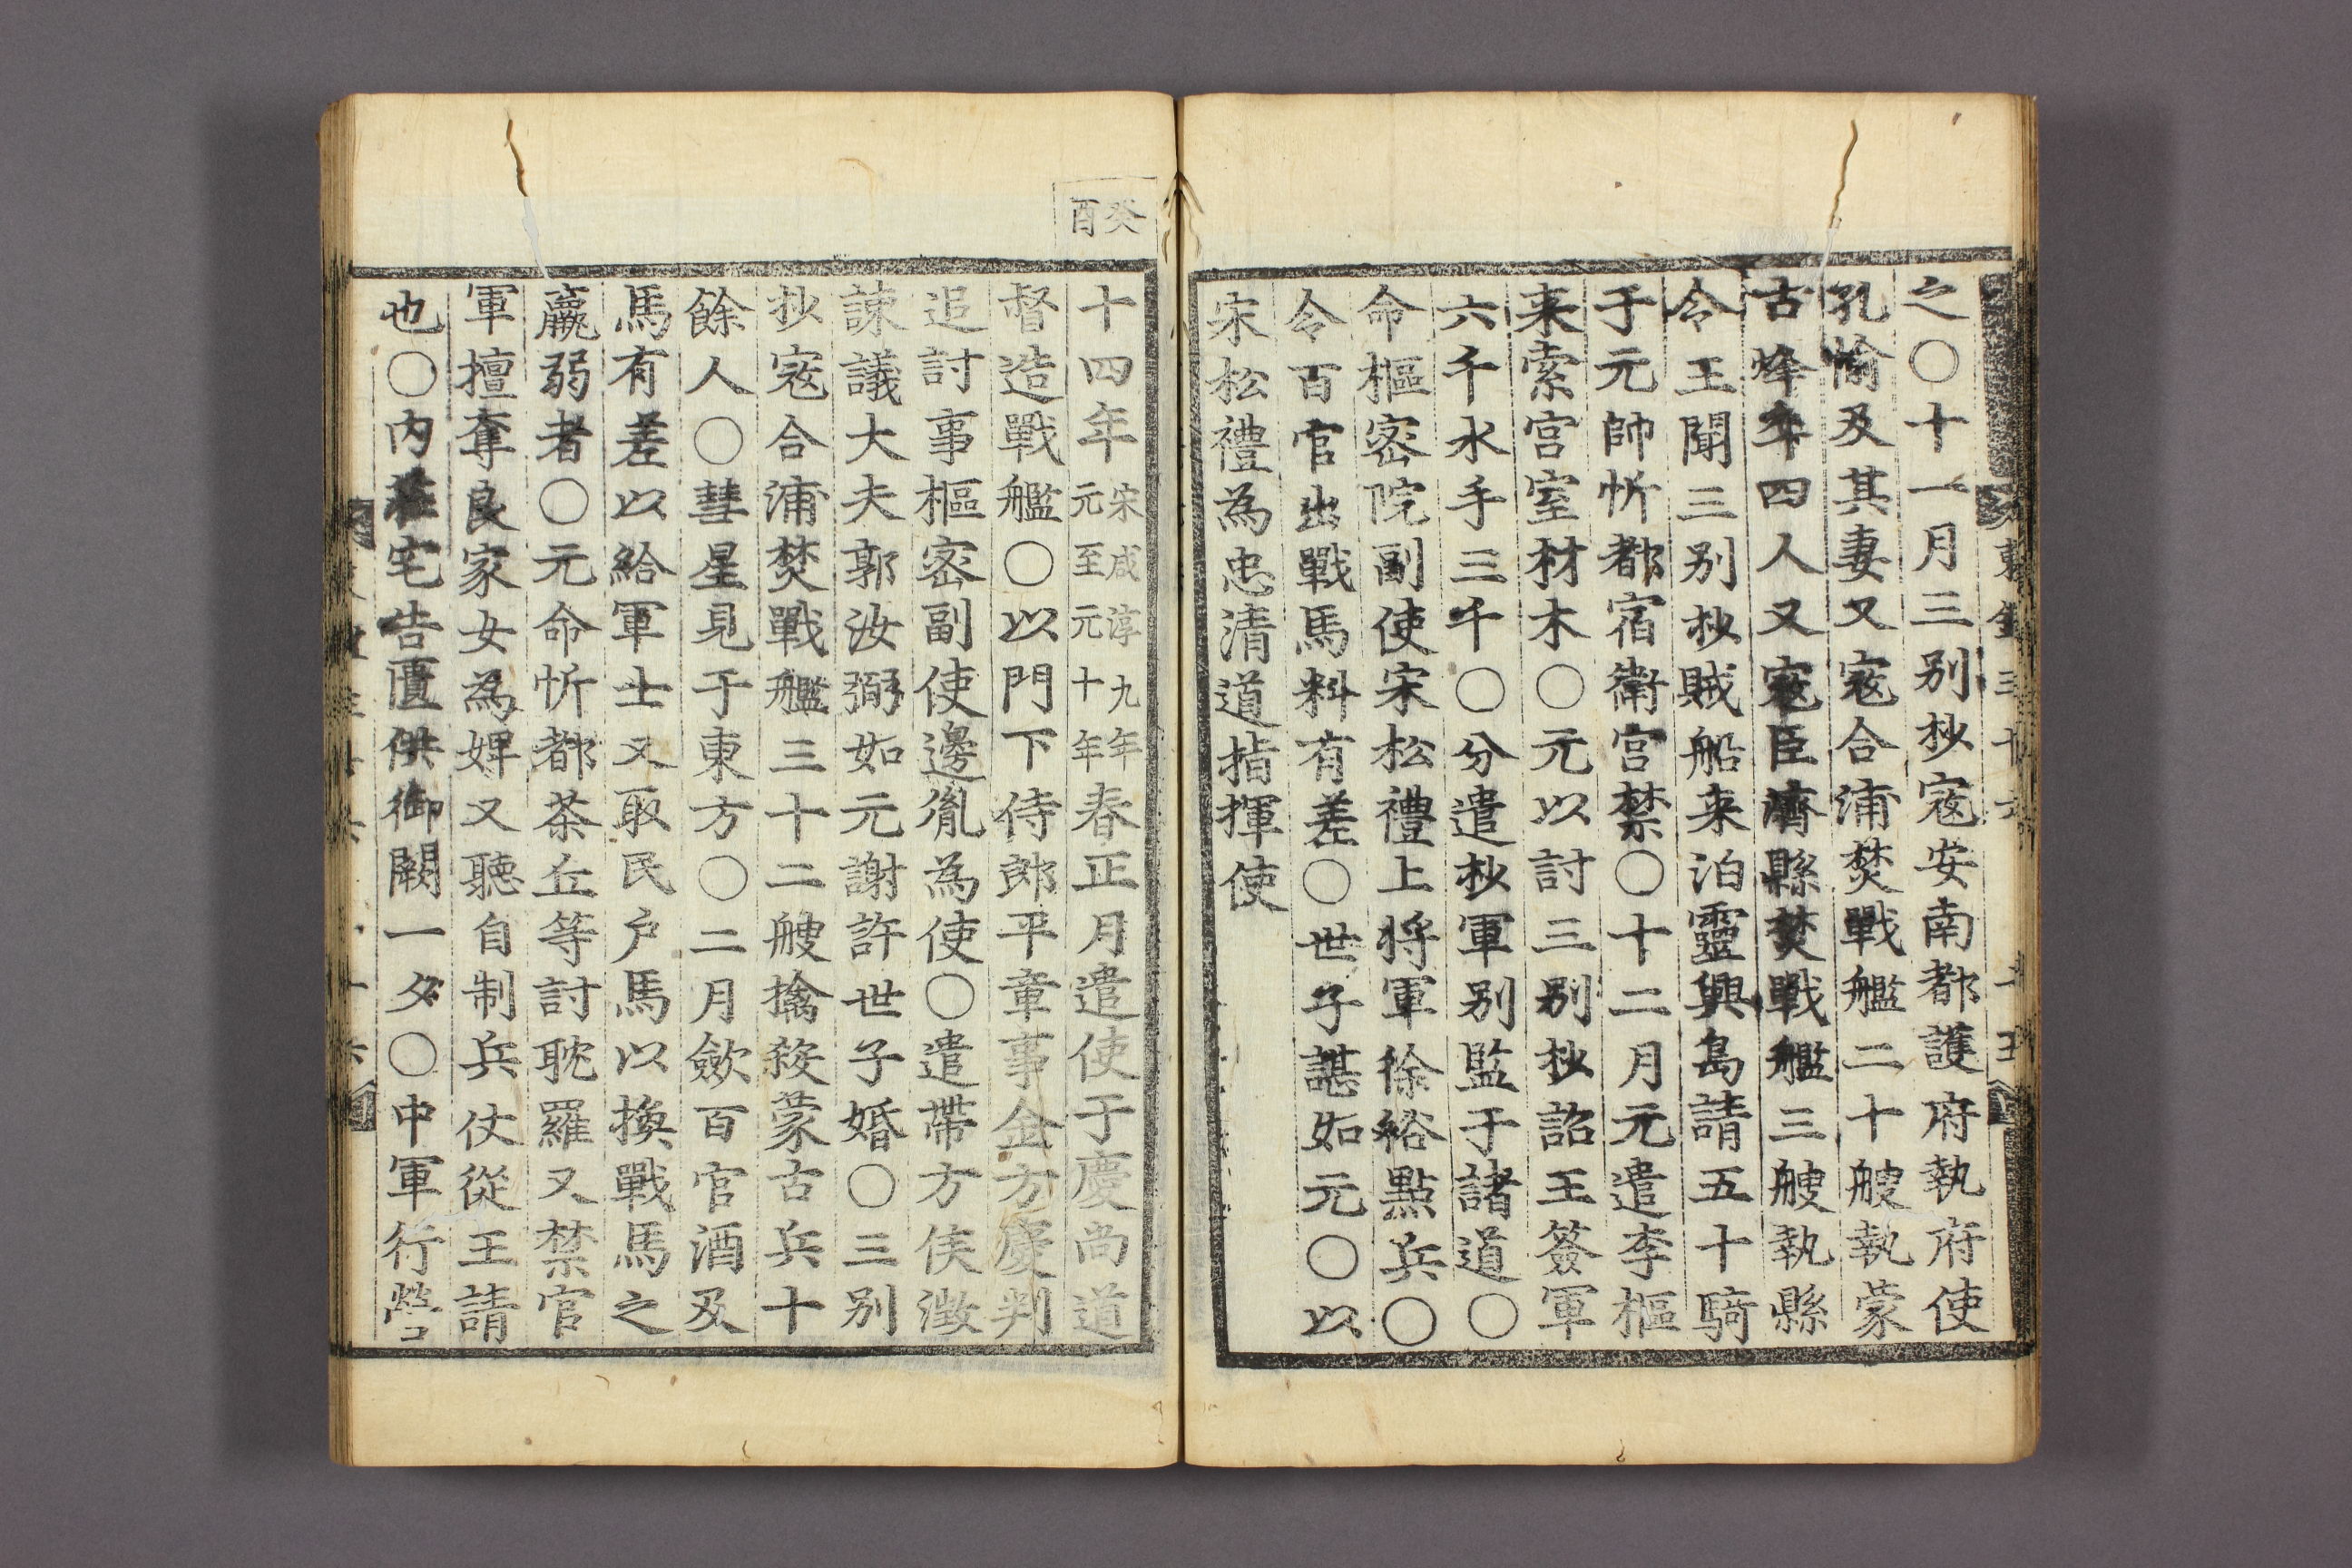 之〇十一月三别抄寇安南都護府執府使
孔愉及其妻又寇合浦焚戰艦二十艘執蒙
古烽卒四人又寇巨濟縣焚戰艦三艘執縣
令王聞三别抄賊船来泊靈興島請五十騎
于元帥忻都宿衛宫禁〇十二月元遣李樞
来索宫室材木〇元以討三别抄詔王簽軍
六千水手三千〇分遣抄軍别監于諸道〇
命樞密院副使宋松禮上将軍徐裕點兵〇
令百官出戰馬料有差〇世子諶如元〇以
宋松禮為忠清道指揮使
癸酉
十四年宋咸淳九年元至元十年春正月遣使于慶尚道
督造戰艦〇以門下侍郎平章事金方慶判
追討事樞密副使邊胤為使〇遣帶方侯澂
諫議大夫郭汝弼如元謝許世子婚〇三别
抄寇合浦焚戰艦三十二艘擒殺蒙古兵十
餘人〇彗星見于東方〇二月斂百官酒及
馬有差以給軍士又取民户馬以換戰馬之
羸弱者〇元命忻都茶丘等討耽羅又禁官
軍擅奪良家女為婢又聽自制兵仗從王請
也〇内莊宅告匱供御闕一夕〇中軍行營